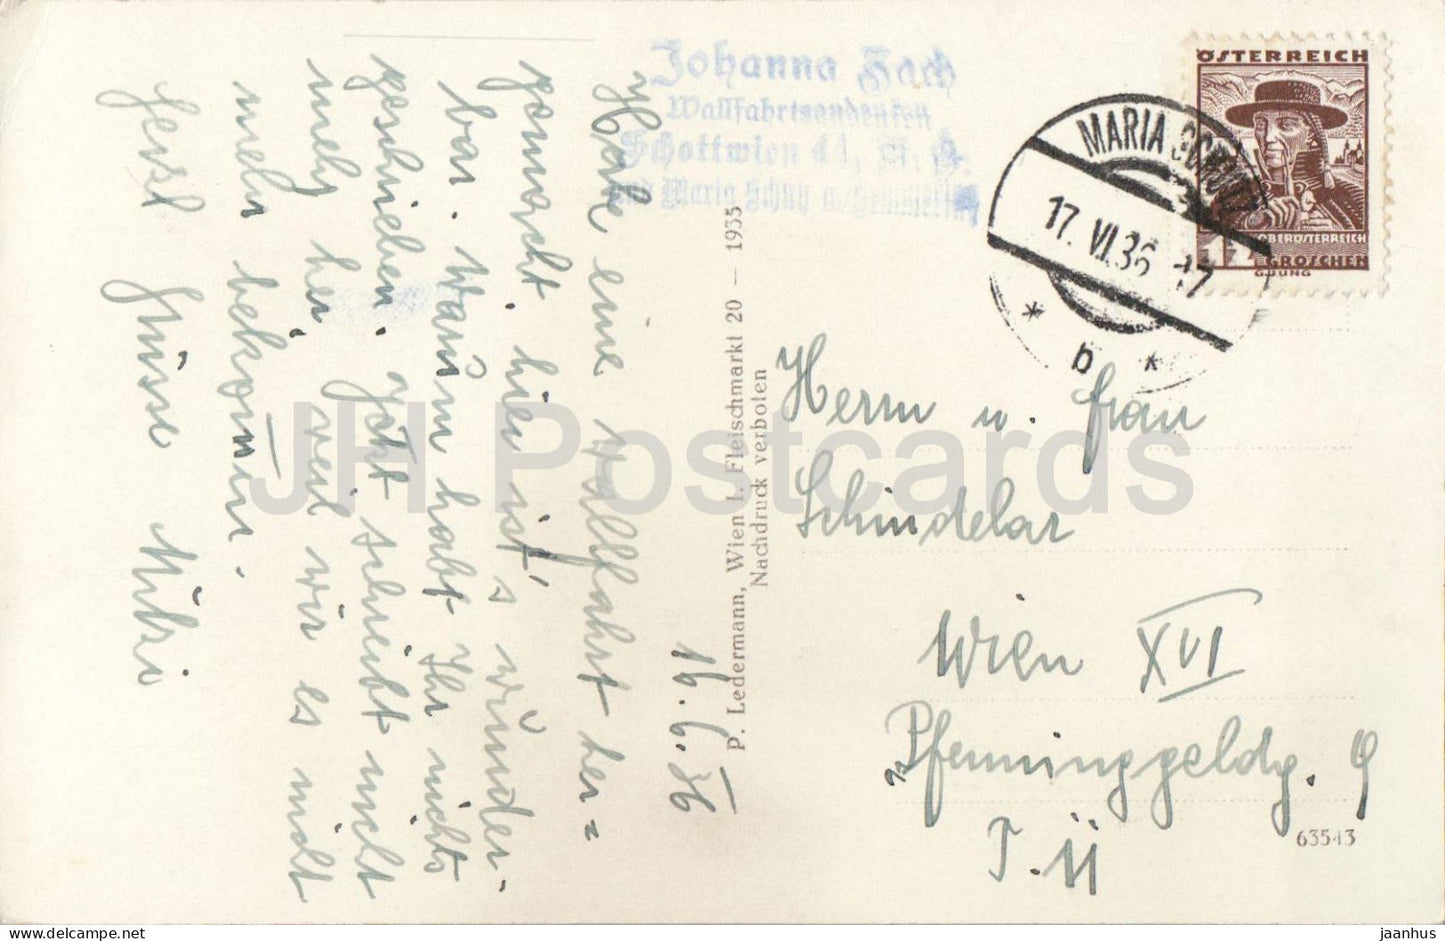 Johanna Fach
Wallfahrtsandenken
Schottwien 41, N. Ö.
und Maria Schutz a/Semmering
ÖSTERREICH
OBERÖSTERREICH
GROSCHEN
GJUNG
MARIA SCHUTZ
17. VI. 36 17
* b *
16. 6. 36
Habe eine Wallfahrt her=
gemacht hier ist's wunder-
bar. Warum habt Ihr nichts
geschrieben. jetzt schreibt nicht
mehr her weil wir es nicht
mehr bekommen.
Grüsse Mitzi
P. Ledermann, Wien I. Fleischmarkt 20 — 1935
Nachdruck verboten
Herrn u. Frau
Schindelar
Wien XVI
Pfenninggeldg. 9
T. 11
63543
JH Postcards
delcampe.net
jaanhus